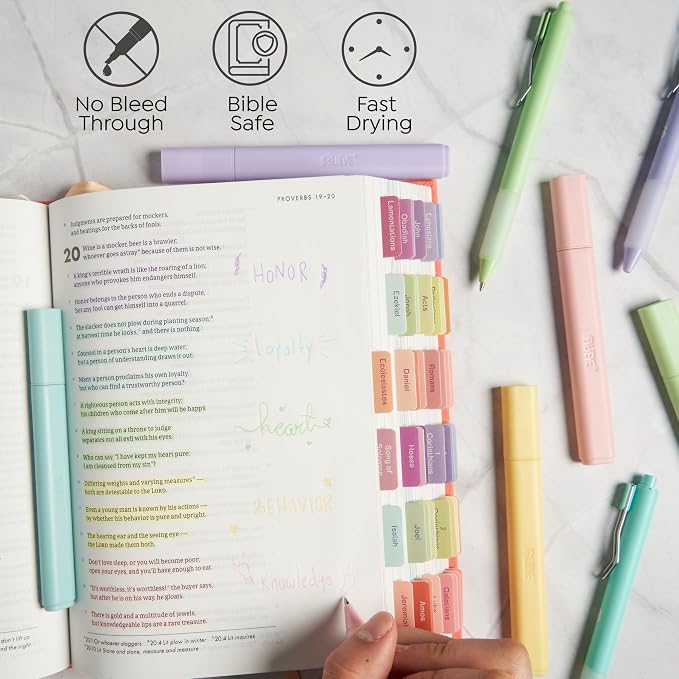 No Bleed
Through
Bible
Safe
Fast
Drying
PROVERBS 19–20
Judgments are prepared for mockers,
and beatings for the backs of fools.
20 Wine is a mocker, beer is a brawler;
whoever goes astray because of them is not wise.
A king's terrible wrath is like the roaring of a lion;
anyone who provokes him endangers himself.
Honor belongs to the person who ends a dispute,
but any fool can get himself into a quarrel.
The slacker does not plow during planting season;
at harvest time he looks, and there is nothing.
Counsel in a person's heart is deep water;
but a person of understanding draws it out.
Many a person proclaims his own loyalty,
but who can find a trustworthy person?
A righteous person acts with integrity;
his children who come after him will be happy.
A king sitting on a throne to judge
separates out all evil with his eyes.
Who can say, "I have kept my heart pure;
I am cleansed from my sin"?
Differing weights and varying measures —
both are detestable to the LORD.
Even a young man is known by his actions —
by whether his behavior is pure and upright.
The hearing ear and the seeing eye —
the LORD made them both.
Don't love sleep, or you will become poor;
open your eyes, and you'll have enough to eat.
"It's worthless, it's worthless!" the buyer says,
but after he is on his way, he gloats.
There is gold and a multitude of jewels,
but knowledgeable lips are a rare treasure.
20:1 Or whoever staggers 20:4 Lit plow in winter 20:4 Lit inquires
20:10 Lit Stone and stone, measure and measure
HONOR
Loyalty
heart
BEHAVIOR
Knowledge
Lamentations
Obadiah
John
Ephesians
Ezekiel
Jonah
Acts
Ecclesiastes
Daniel
Romans
Song of
Solomon
Hosea
1
Corinthians
Isaiah
Joel
2
Jeremiah
Amos
Luke
Galatians
don't lift up
and the night